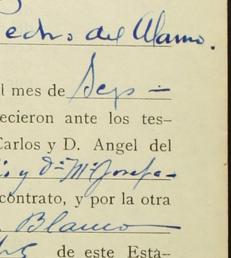 edro del Alamo.
l mes de Sep -
ecieron ante los tes-
Carlos y D. Angel del
y d.ª M.ª Josefa-
contrato, y por la otra
Blanco
de este Esta-